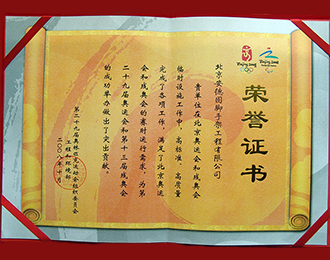 荣誉证书
Beijing 2008
Beijing 2008
北京安德固脚手架工程有限公司
贵单位在北京奥运会和残奥会
临时设施工作中，高标准、高质量
完成了各项工作，满足了北京奥运
会和残奥会的赛时运行需求，为第
二十九届奥运会和第十三届残奥会
的成功举办做出了突出贡献。
第二十九届奥林匹克运动会组织委员会
工程和环境部
二〇〇八年十月